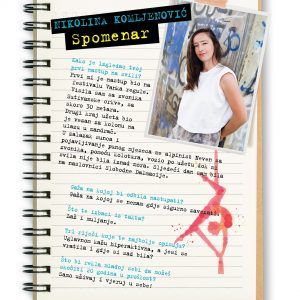 NIKOLINA KOMLJENOVIĆ
Spomenar
Kako je izgledao tvoj
prvi nastup na svili?
Prvi mi je nastup bio na
festivalu Vanka regule.
Visila sam sa zvonika
Sutivanske crkve, sa
skoro 30 metara.
Drugi kraj užeta bio
je vezan za kolonu na
ulazu u
U zalazak sunca i
pojavljivanje punog mjeseca me alpinist Neven sa
zvonika, pomoću kolotura, vozio po užetu dok mi
svila nije bila iznad mora. Sljedeći dan sam bila
na naslovnici Slobodne Dalmacije.
Gaža na kojoj bi odbila nastupati?
Gaža na kojoj se nemam gdje sigurno zavezati.
Što te izbaci iz takta?
Laž i muljanje.
Tri riječi koje te najbolje opisuju?
Uglavnom kažu hiperaktivna, a jesi se
vratila i gdje si sad bila?
Što bi rekla mlađoj sebi da možeš
skočiti 20 godina u prošlost?
Samo uživaj i vjeruj u sebe!